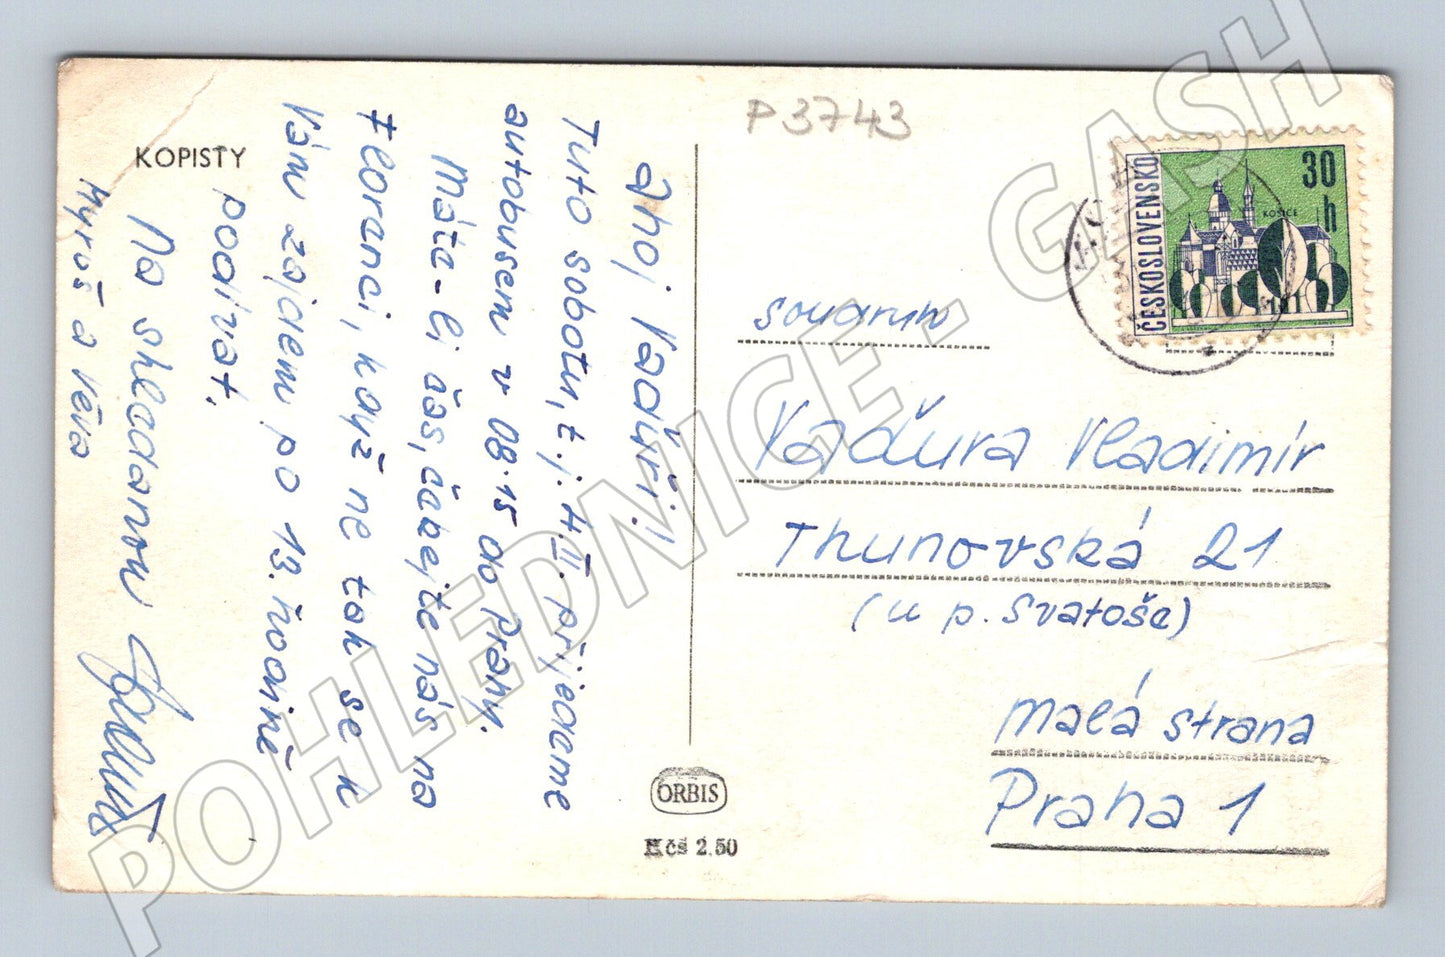 KOPISTY
Ahoj Vaďuři!
Tuto sobotu, t.j. 4.II. přijedeme
autobusem v 08.15 do Prahy.
Máte-li čas, čekejte nás na
Florenci, když ne tak se k
Vám zajdem po 13. hodině
podívat.
Na shledanou
Myruš a Věra
P3743
ČESKOSLOVENSKO
30
h
KOŠICE
soudruh
Vaďura Vladimír
Thunovská 21
(u p. Svatoše)
Malá strana
Praha 1
ORBIS
Kčs 2.50
POHLEDNICE - GASH